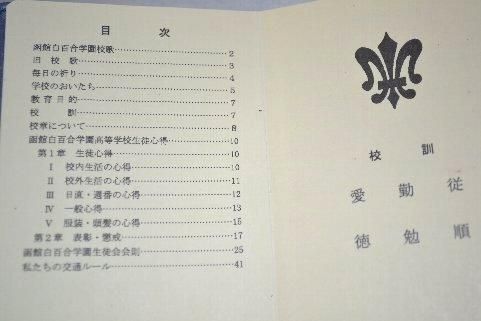 目　次
函館白百合学園校歌……………2
旧校歌……………3
毎日の祈り……………4
学校のおいたち……………5
教育目的……………7
校訓……………7
校章について……………8
函館白百合学園高等学校生徒心得……………10
第1章　生徒心得……………10
Ⅰ　校内生活の心得……………10
Ⅱ　校外生活の心得……………11
Ⅲ　日直・週番の心得……………12
Ⅳ　一般心得……………13
Ⅴ　服装・頭髪の心得……………15
第2章　表彰・懲戒……………17
函館白百合学園生徒会会則……………25
私たちの交通ルール……………41
校訓
従順
勤勉
愛徳